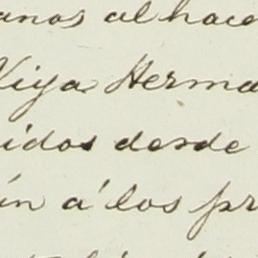 anos al hace
Viya Herma
idos desde
ín á los pr